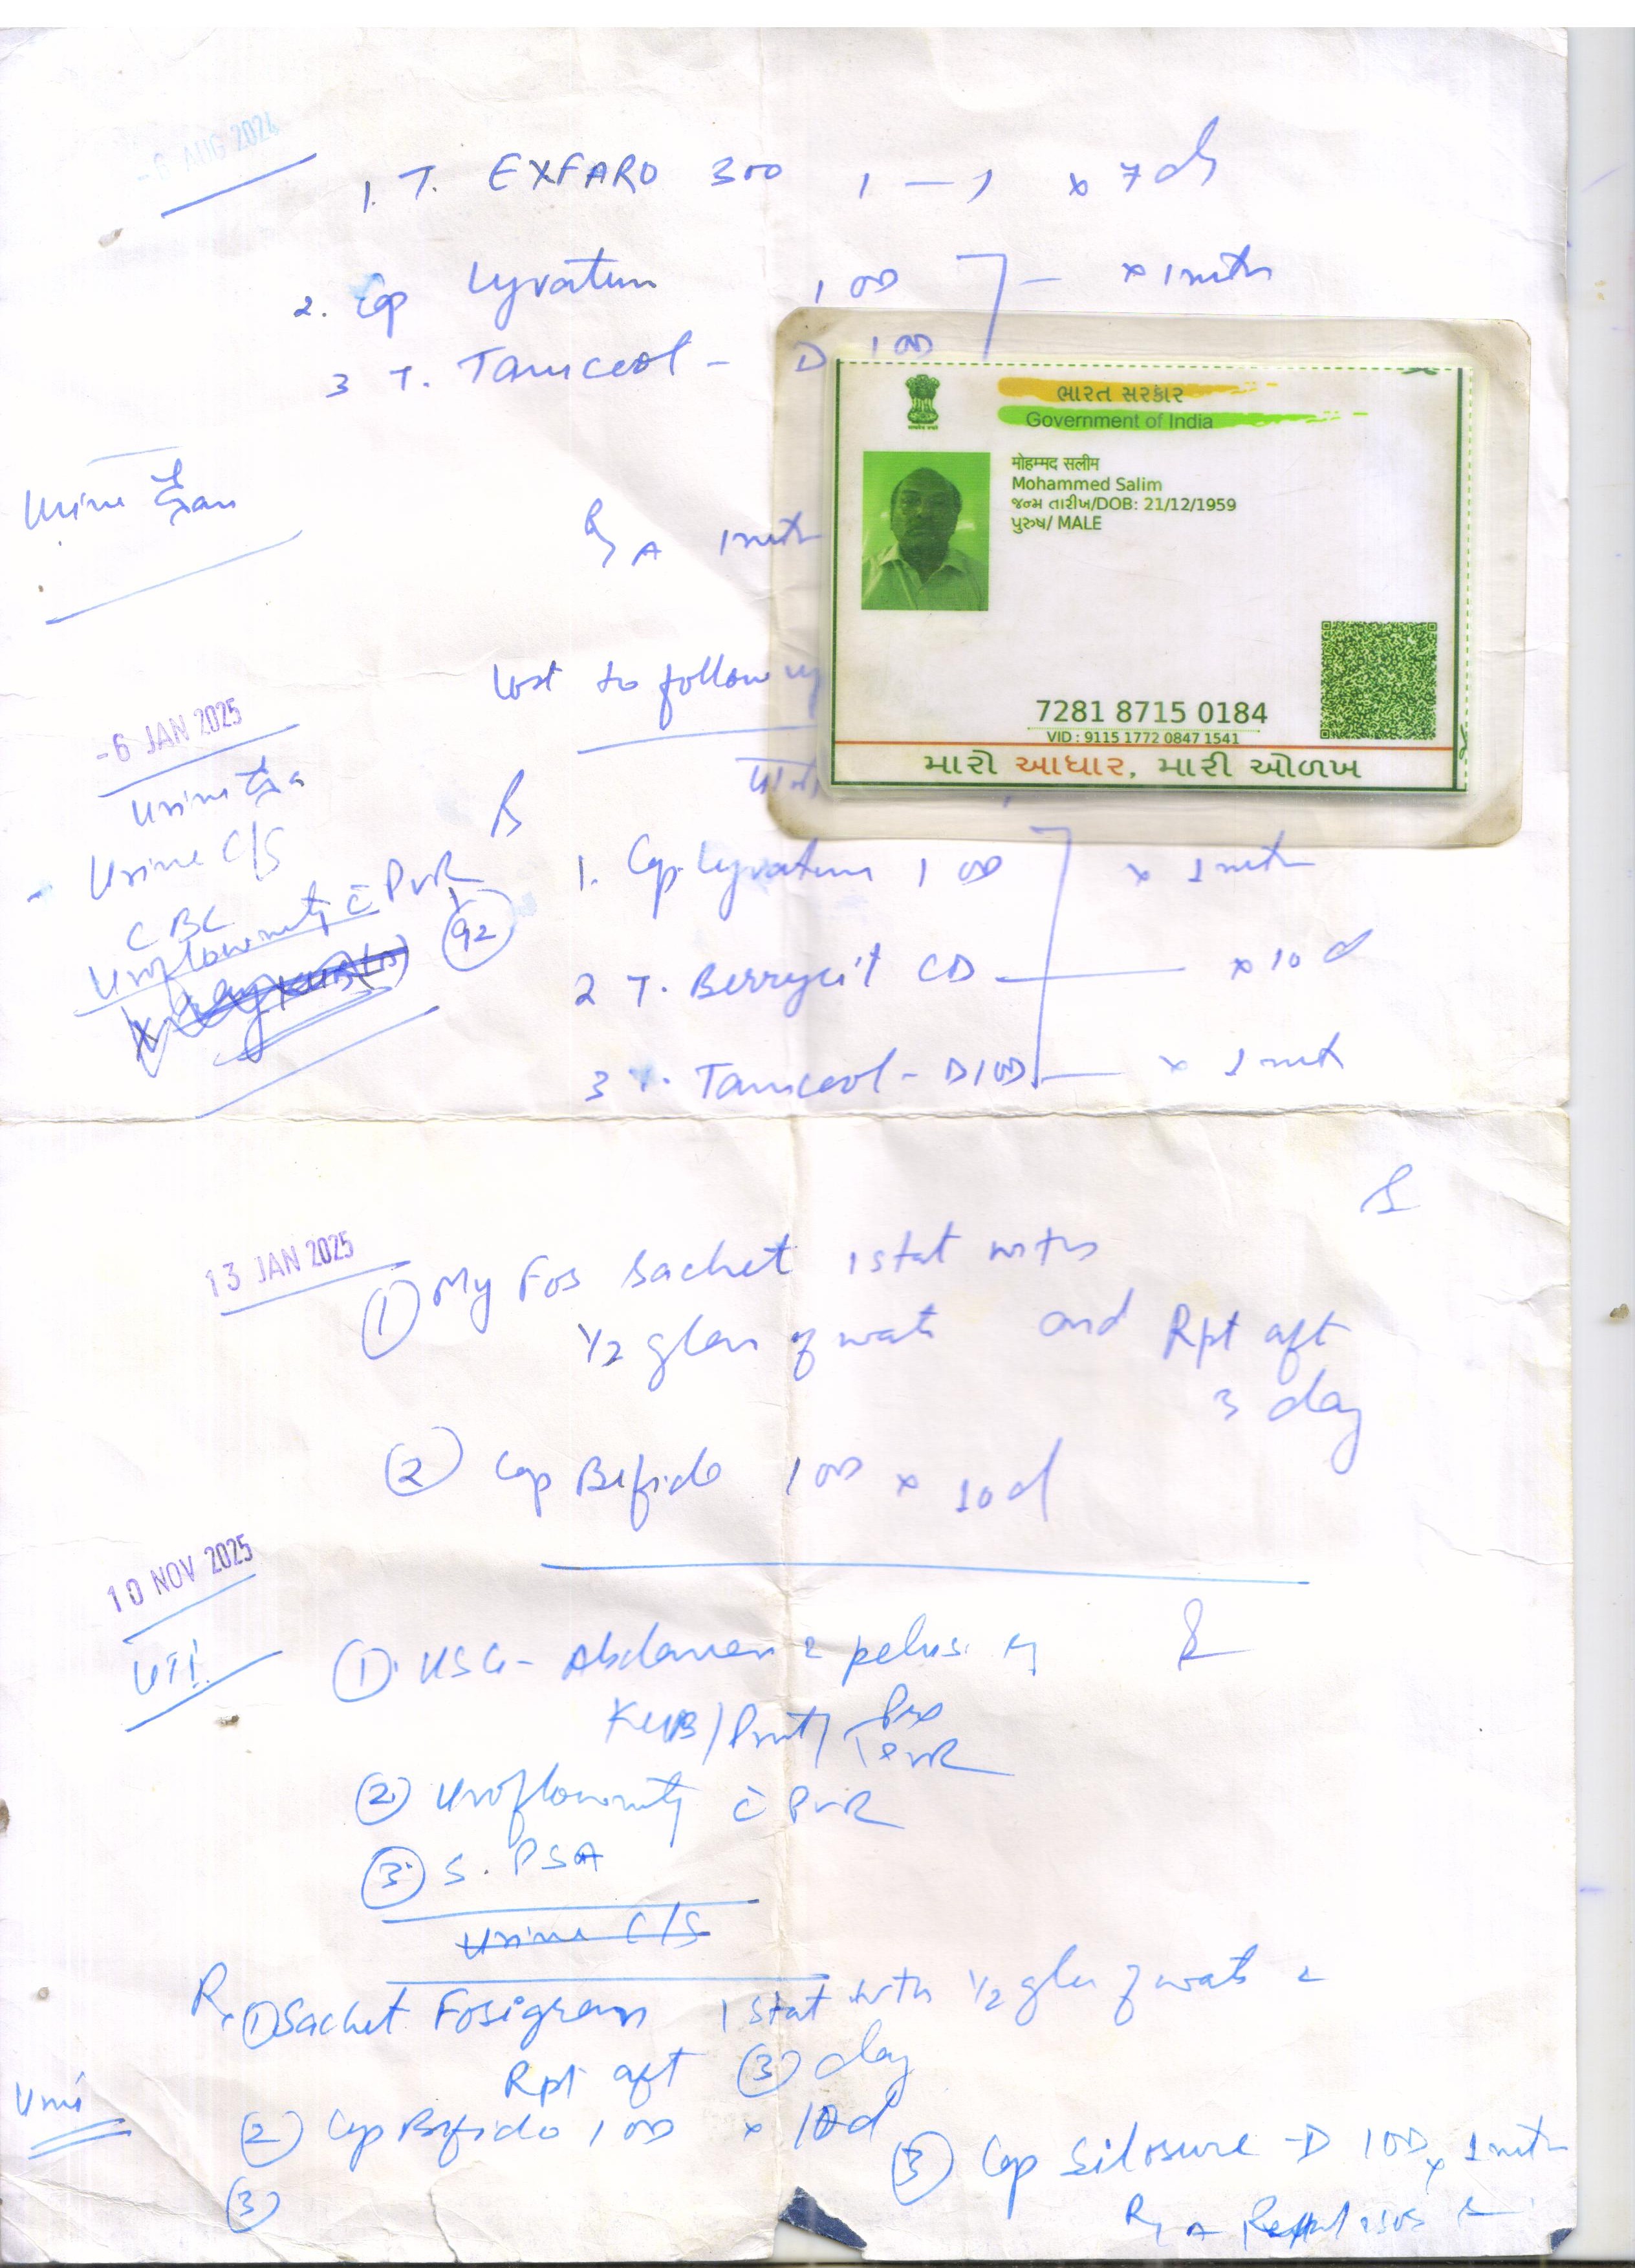 -6 AUG 2024
1. T. EXFARO 300 1 — 1 x 7 d
2. Cap Lyvatum 1 OD — x 1 mth
3 T. Tamceol - D 1 OD
ભારત સરકાર
Government of India
मोहम्मद सलीम
Mohammed Salim
જન્મ તારીખ/DOB: 21/12/1959
પુરુષ/ MALE
7281 8715 0184
VID : 9115 1772 0847 1541
મારો આધાર, મારી ઓળખ
Urine
R A 1 mth
Lost to follow up
-6 JAN 2025
Urine
Urine C/S
CBC
Uroflowmetry c̄ PVR
92
1. Cap Lyvatum 1 OD x 1 mth
2 T. Berrycit CD — x 10 d
3 T. Tamceol - D 1 OD — x 1 mth
13 JAN 2025
① My Fos Sachet 1 stat with
1/2 glass of water and Rpt aft
3 day
② Cap Bifido 1 OD x 10 d
10 NOV 2025
UTI
① USG - Abdomen & pelvis
KUB/Prost/Pre
PVR
② Uroflowmetry c̄ PVR
③ S. PSA
Urine C/S
Rx ① Sachet Fosigram 1 stat with 1/2 glass of water &
Rpt aft ③ day
② Cap Bifido 1 OD x 10 d
③
③ Cap Silosure - D 1 OD x 1 mth
R A